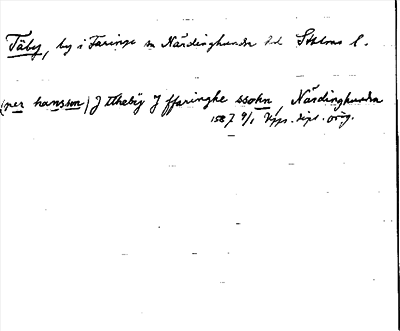 Täby, by i Faringe sn Närdinghundra hd Sthlms l.
(per hansson) J theby J ffaringhe ssokn, Närdinghundra
1587 9/1 Upps. dipl. orig.